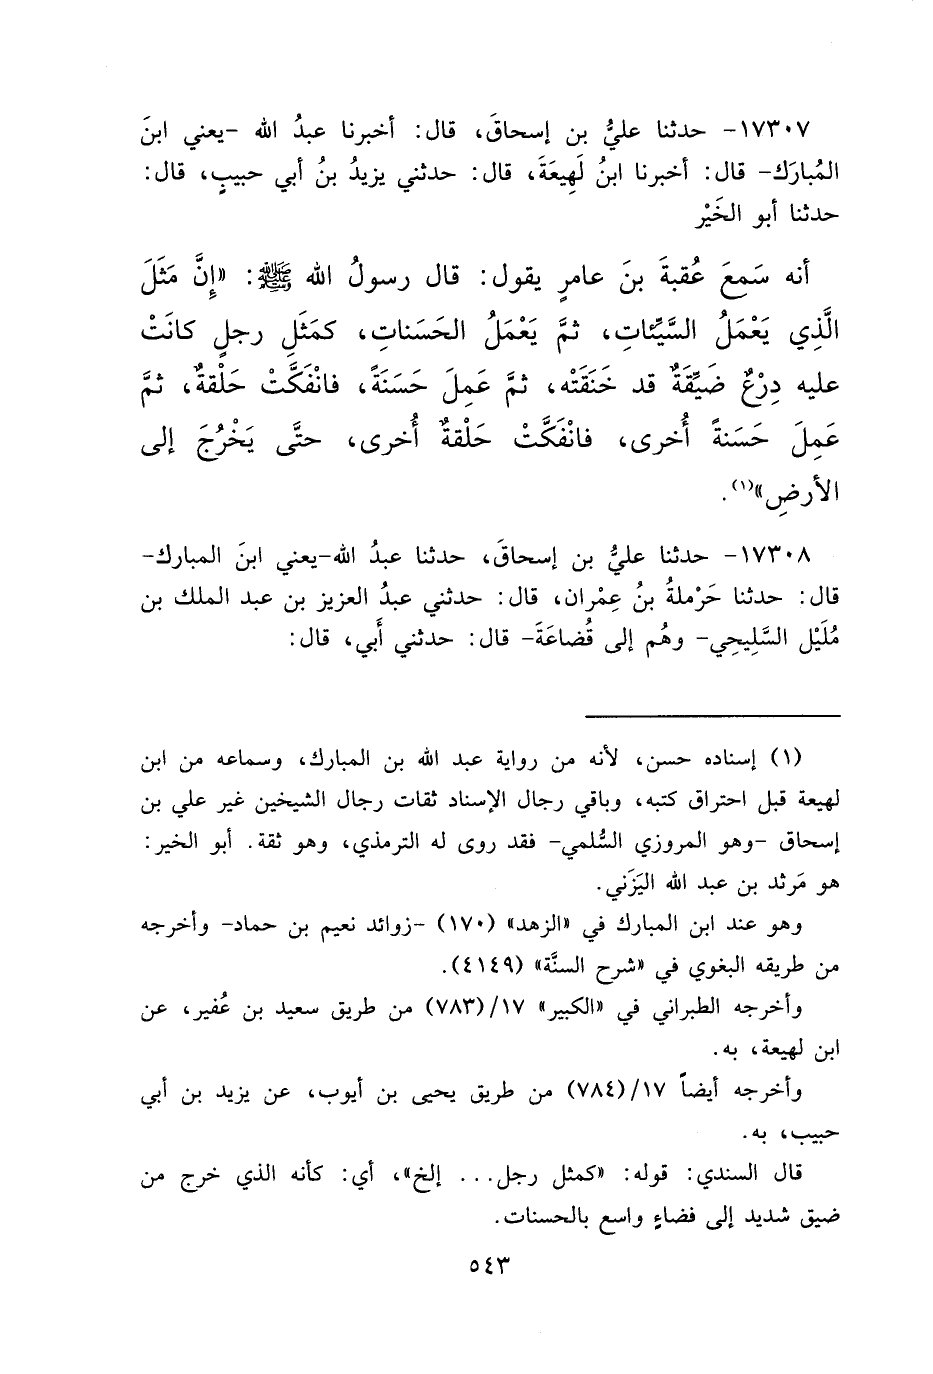 ١٧٣٠٧- حدثنا عليُّ بن إسحاقَ، قال: أخبرنا عبدُ الله -يعني ابنَ
المُبارَك- قال: أخبرنا ابنُ لَهِيعَةَ، قال: حدثني يزيدُ بنُ أبي حبيبٍ، قال:
حدثنا أبو الخَيْر
أنه سَمِعَ عُقبةَ بنَ عامرٍ يقول: قال رسولُ الله ﷺ: «إِنَّ مَثَلَ
الَّذِي يَعْمَلُ السَّيِّئاتِ، ثمَّ يَعْمَلُ الحَسَناتِ، كمَثَلِ رجلٍ كانَتْ
عليه دِرْعٌ ضَيِّقَةٌ قد خَنَقَتْه، ثمَّ عَمِلَ حَسَنَةً، فانْفَكَّتْ حَلْقةٌ، ثمَّ
عَمِلَ حَسَنةً أُخرى، فانْفَكَّتْ حَلْقةٌ أُخرى، حتَّى يَخْرُجَ إلى
الأرضِ»(١).
١٧٣٠٨- حدثنا عليُّ بن إسحاقَ، حدثنا عبدُ الله-يعني ابنَ المبارك-
قال: حدثنا حَرْملةُ بنُ عِمْران، قال: حدثني عبدُ العزيز بن عبد الملك بن
مُلَيْل السَّلِيحِي- وهُم إلى قُضاعَةَ- قال: حدثني أَبي، قال:
(١) إسناده حسن، لأنه من رواية عبد الله بن المبارك، وسماعه من ابن
لهيعة قبل احتراق كتبه، وباقي رجال الإسناد ثقات رجال الشيخين غير علي بن
إسحاق -وهو المروزي السُّلمي- فقد روى له الترمذي، وهو ثقة. أبو الخير:
هو مَرثد بن عبد الله اليَزَني.
وهو عند ابن المبارك في «الزهد» (١٧٠) -زوائد نعيم بن حماد- وأخرجه
من طريقه البغوي في «شرح السنَّة» (٤١٤٩).
وأخرجه الطبراني في «الكبير» ١٧/(٧٨٣) من طريق سعيد بن عُفير، عن
ابن لهيعة، به.
وأخرجه أيضاً ١٧/(٧٨٤) من طريق يحيى بن أيوب، عن يزيد بن أبي
حبيب، به.
قال السندي: قوله: «كمثل رجل... إلخ»، أي: كأنه الذي خرج من
ضيق شديد إلى فضاءٍ واسع بالحسنات.
٥٤٣